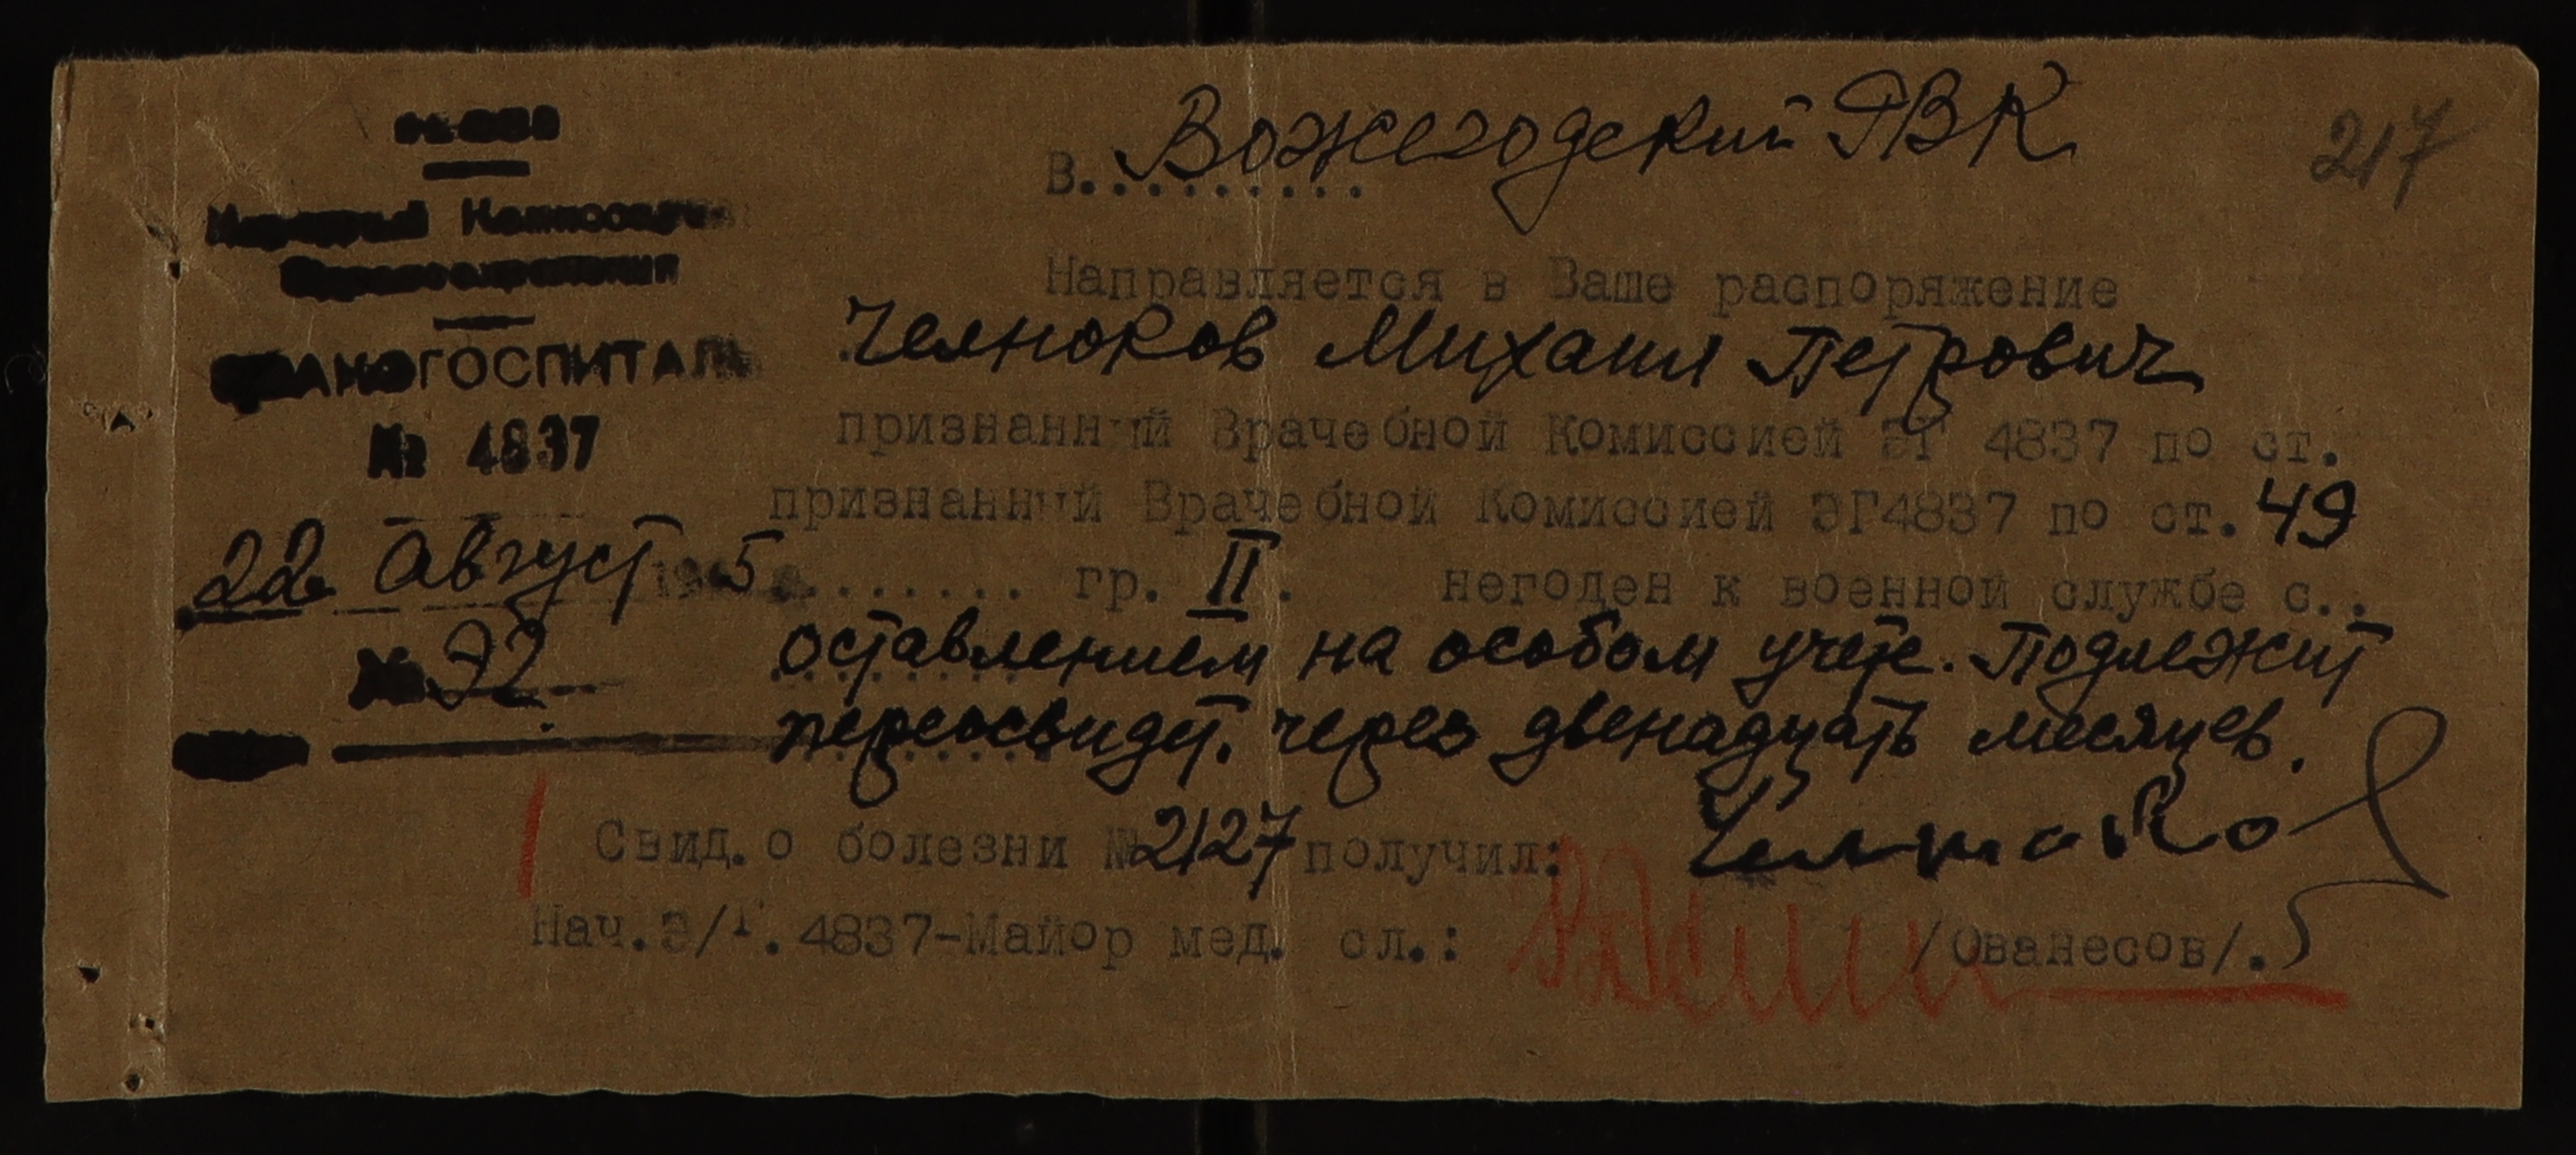 В. Вожегодский РВК
217
Народный Комиссариат
Здравоохранения
ГОСПИТАЛЬ
№ 4837
22 Август 1945
№ 92
Направляется в Ваше распоряжение
Челноков Михаил Петрович
признанный Врачебной Комиссией ЭГ 4837 по ст.
признанный Врачебной Комиссией ЭГ4837 по ст. 49
гр. II. негоден к военной службе с..
оставлением на особом учете. Подлежит
переосвидет. через двенадцать месяцев.
Свид. о болезни №2127 получил: Челноков
Нач.Э/Г.4837-Майор мед. сл.: /Ованесов/.